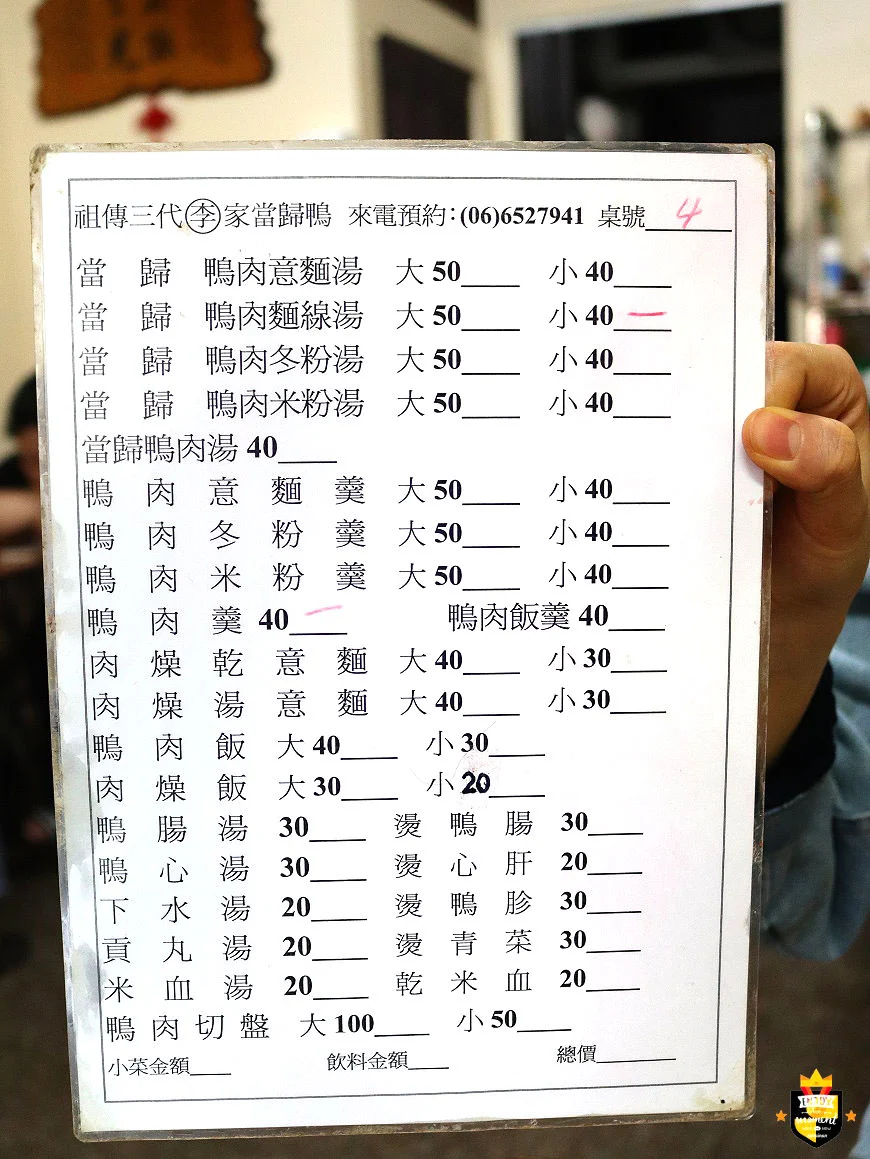 祖傳三代李家當歸鴨 來電預約:(06)6527941 桌號 4
當歸 鴨肉意麵湯 大50____ 小40____
當歸 鴨肉麵線湯 大50____ 小40__一__
當歸 鴨肉冬粉湯 大50____ 小40____
當歸 鴨肉米粉湯 大50____ 小40____
當歸鴨肉湯 40____
鴨肉意麵羹 大50____ 小40____
鴨肉冬粉羹 大50____ 小40____
鴨肉米粉羹 大50____ 小40____
鴨肉羹 40__一__ 鴨肉飯羹 40____
肉燥乾意麵 大40____ 小30____
肉燥湯意麵 大40____ 小30____
鴨肉飯 大40____ 小30____
肉燥飯 大30____ 小20____
鴨腸湯 30____ 燙鴨腸 30____
鴨心湯 30____ 燙心肝 20____
下水湯 20____ 燙鴨胗 30____
貢丸湯 20____ 燙青菜 30____
米血湯 20____ 乾米血 20____
鴨肉切盤 大100____ 小50____
小菜金額____ 飲料金額____ 總價____